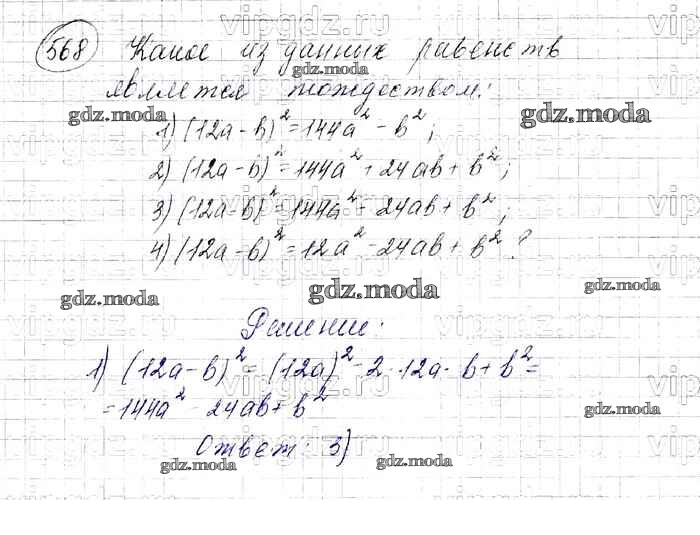 568 Какое из данных равенств
является тождеством:
1) (12a - b)² = 144a² - b²;
2) (12a - b)² = 144a² + 24ab + b²;
3) (12a - b)² = 144a² - 24ab + b²;
4) (12a - b)² = 12a² - 24ab + b²?
Решение:
1) (12a - b)² = (12a)² - 2 · 12a · b + b² =
= 144a² - 24ab + b²
Ответ: 3)
vipgdz.ru
gdz.moda